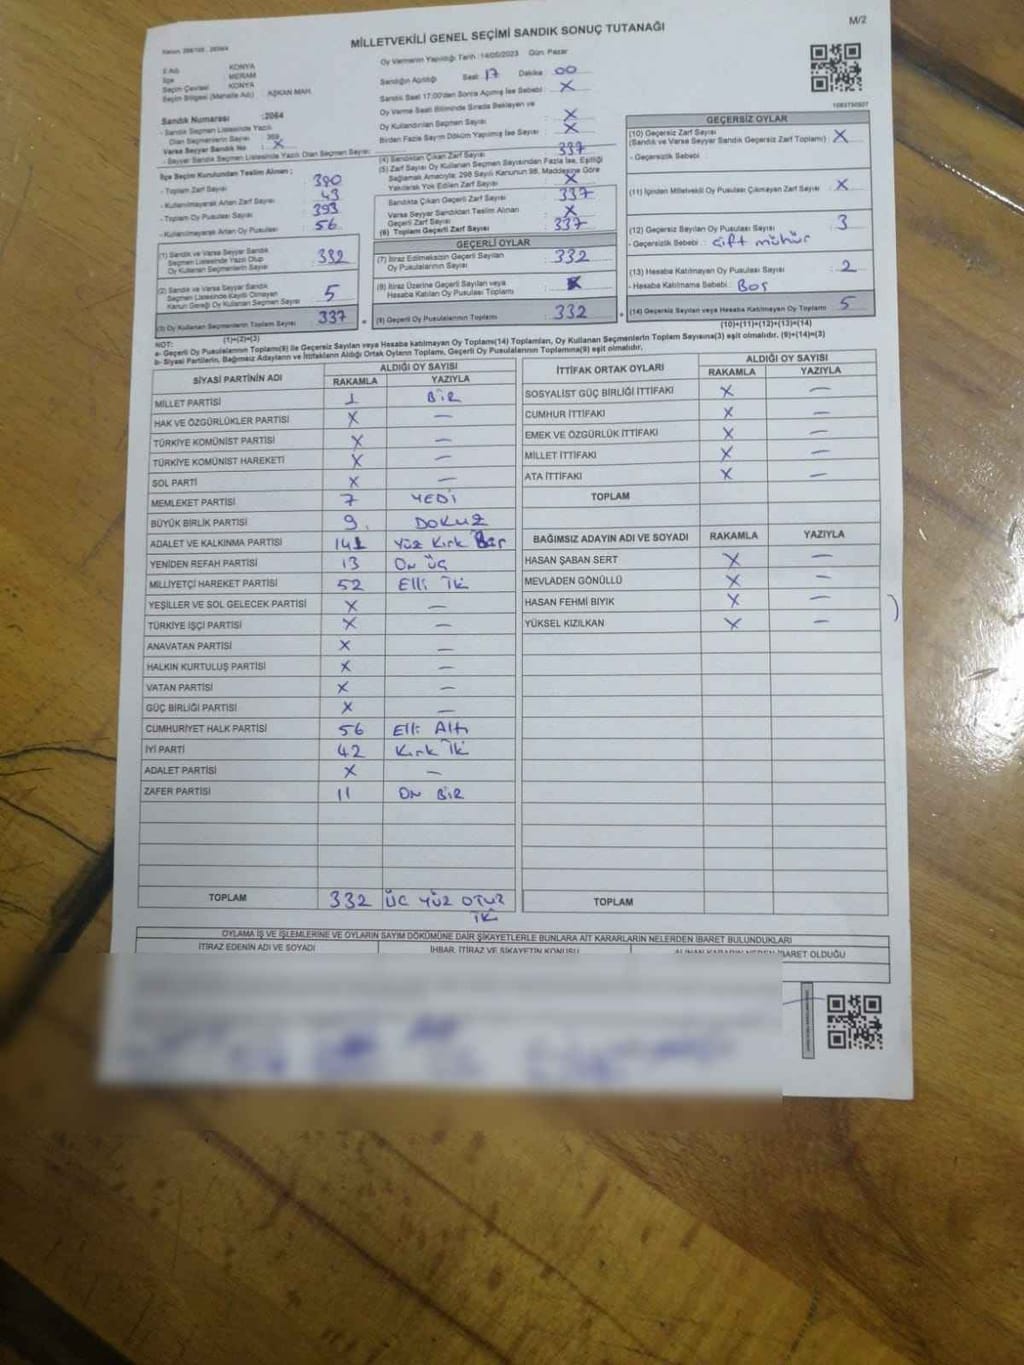 MİLLETVEKİLİ GENEL SEÇİMİ SANDIK SONUÇ TUTANAĞI
M/2
İl Adı : KONYA
İlçe : MERAM
Seçim Çevresi : KONYA
Seçim Bölgesi (Mahalle Adı) : AŞKAN MAH.
Sandık Numarası : 2064
- Sandık Seçmen Listesinde Yazılı
Olan Seçmenlerin Sayısı : 369
Varsa Seyyar Sandık No : X
- Seyyar Sandık Seçmen Listesinde Yazılı Olan Seçmen Sayısı:
Oy Vermenin Yapıldığı Tarih :14/05/2023 Gün: Pazar
Sandığın Açıldığı Saat: 17 Dakika : 00
Sandık Saat 17:00'den Sonra Açılmış İse Sebebi : X
Oy Verme Saati Bitiminde Sırada Bekleyen ve
Oy Kullandırılan Seçmen Sayısı : X
Birden Fazla Sayım Döküm Yapılmış İse Sayısı : X
İlçe Seçim Kurulundan Teslim Alınan ;
- Toplam Zarf Sayısı : 380
- Kullanılmayarak Artan Zarf Sayısı : 43
- Toplam Oy Pusulası Sayısı : 393
- Kullanılmayarak Artan Oy Pusulası : 56
(1) Sandık ve Varsa Seyyar Sandık
Seçmen Listesinde Yazılı Olup
Oy Kullanan Seçmenlerin Sayısı : 332
(2) Sandık ve Varsa Seyyar Sandık
Seçmen Listesinde Kayıtlı Olmayan
Kanun Gereği Oy Kullanan Seçmen Sayısı : 5
(3) Oy Kullanan Seçmenlerin Toplam Sayısı : 337
(1)+(2)=(3)
(4) Sandıktan Çıkan Zarf Sayısı : 337
(5) Zarf Sayısı Oy Kullanan Seçmen Sayısından Fazla İse, Eşitliği
Sağlamak Amacıyla; 298 Sayılı Kanunun 98. Maddesine Göre
Yakılarak Yok Edilen Zarf Sayısı : X
Sandıkta Çıkan Geçerli Zarf Sayısı : 337
Varsa Seyyar Sandıktan Teslim Alınan
Geçerli Zarf Sayısı : X
(6) Toplam Geçerli Zarf Sayısı : 337
GEÇERLİ OYLAR
(7) İtiraz Edilmeksizin Geçerli Sayılan
Oy Pusulalarının Sayısı : 332
(8) İtiraz Üzerine Geçerli Sayılan veya
Hesaba Katılan Oy Pusulası Toplamı : X
(9) Geçerli Oy Pusulalarının Toplamı : 332
GEÇERSİZ OYLAR
(10) Geçersiz Zarf Sayısı
(Sandık ve Varsa Seyyar Sandık Geçersiz Zarf Toplamı) : X
- Geçersizlik Sebebi :
(11) İçinden Milletvekili Oy Pusulası Çıkmayan Zarf Sayısı : X
(12) Geçersiz Sayılan Oy Pusulası Sayısı : 3
- Geçersizlik Sebebi : çift mühür
(13) Hesaba Katılmayan Oy Pusulası Sayısı : 2
- Hesaba Katılmama Sebebi : Boş
(14) Geçersiz Sayılan veya Hesaba Katılmayan Oy Toplamı : 5
(10)+(11)+(12)+(13)=(14)
NOT:
a- Geçerli Oy Pusulalarının Toplamı(9) ile Geçersiz Sayılan veya Hesaba Katılmayan Oy Toplamı(14) Toplamları, Oy Kullanan Seçmenlerin Toplam Sayısına(3) eşit olmalıdır. (9)+(14)=(3)
b- Siyasi Partilerin, Bağımsız Adayların ve İttifakların Aldığı Ortak Oyların Toplamı, Geçerli Oy Pusulalarının Toplamına(9) eşit olmalıdır.
SİYASİ PARTİNİN ADI ALDIĞI OY SAYISI
RAKAMLA YAZIYLA
MİLLET PARTİSİ 1 BİR
HAK VE ÖZGÜRLÜKLER PARTİSİ X —
TÜRKİYE KOMÜNİST PARTİSİ X —
TÜRKİYE KOMÜNİST HAREKETİ X —
SOL PARTİ X —
MEMLEKET PARTİSİ 7 YEDİ
BÜYÜK BİRLİK PARTİSİ 9 DOKUZ
ADALET VE KALKINMA PARTİSİ 141 Yüz Kırk Bir
YENİDEN REFAH PARTİSİ 13 On Üç
MİLLİYETÇİ HAREKET PARTİSİ 52 Elli İki
YEŞİLLER VE SOL GELECEK PARTİSİ X —
TÜRKİYE İŞÇİ PARTİSİ X —
ANAVATAN PARTİSİ X —
HALKIN KURTULUŞ PARTİSİ X —
VATAN PARTİSİ X —
GÜÇ BİRLİĞİ PARTİSİ X —
CUMHURİYET HALK PARTİSİ 56 Elli Altı
İYİ PARTİ 42 Kırk İki
ADALET PARTİSİ X —
ZAFER PARTİSİ 11 ON BİR
TOPLAM 332 ÜÇ YÜZ OTUZ
İKİ
İTTİFAK ORTAK OYLARI ALDIĞI OY SAYISI
RAKAMLA YAZIYLA
SOSYALİST GÜÇ BİRLİĞİ İTTİFAKI X —
CUMHUR İTTİFAKI X —
EMEK VE ÖZGÜRLÜK İTTİFAKI X —
MİLLET İTTİFAKI X —
ATA İTTİFAKI X —
TOPLAM
BAĞIMSIZ ADAYIN ADI VE SOYADI RAKAMLA YAZIYLA
HASAN ŞABAN SERT X —
MEVLADEN GÖNÜLLÜ X —
HASAN FEHMİ BIYIK X —
YÜKSEL KIZILKAN X —
TOPLAM
OYLAMA İŞ VE İŞLEMLERİNE VE OYLARIN SAYIM DÖKÜMÜNE DAİR ŞİKAYETLERLE BUNLARA AİT KARARLARIN NELERDEN İBARET BULUNDUKLARI
İTİRAZ EDENİN ADI VE SOYADI İHBAR, İTİRAZ VE ŞİKAYETİN KONUSU ALINAN KARARIN NEDEN İBARET OLDUĞU